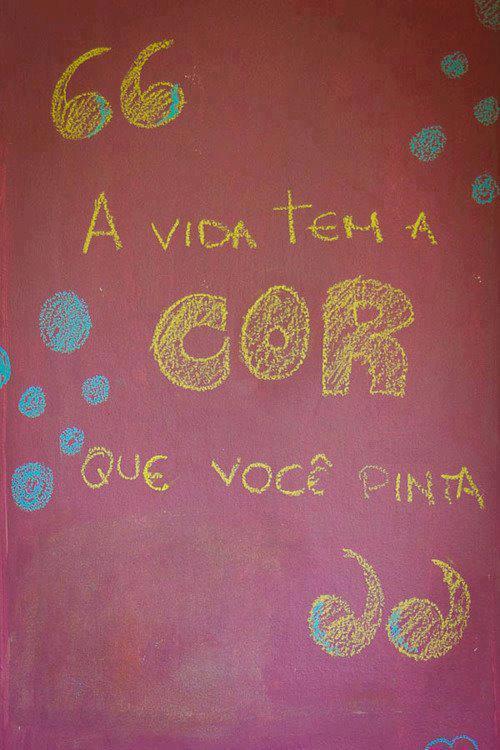 “
A VIDA TEM A
COR
QUE VOCÊ PINTA
”